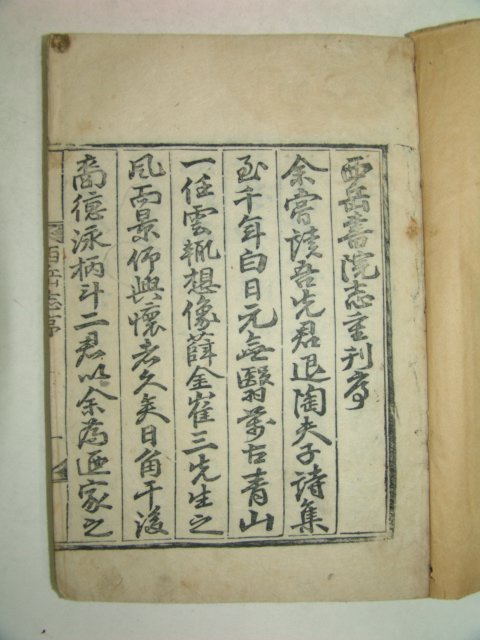 西岳書院志重刊序
余嘗讀吾先君退陶夫子詩集
至千年白日元無翳萬古青山
一任雲輒想像薛金崔三先生之
風而景仰興懷者久矣日角干後
裔德泳柄斗二君以余為邇家之
西岳志序
一